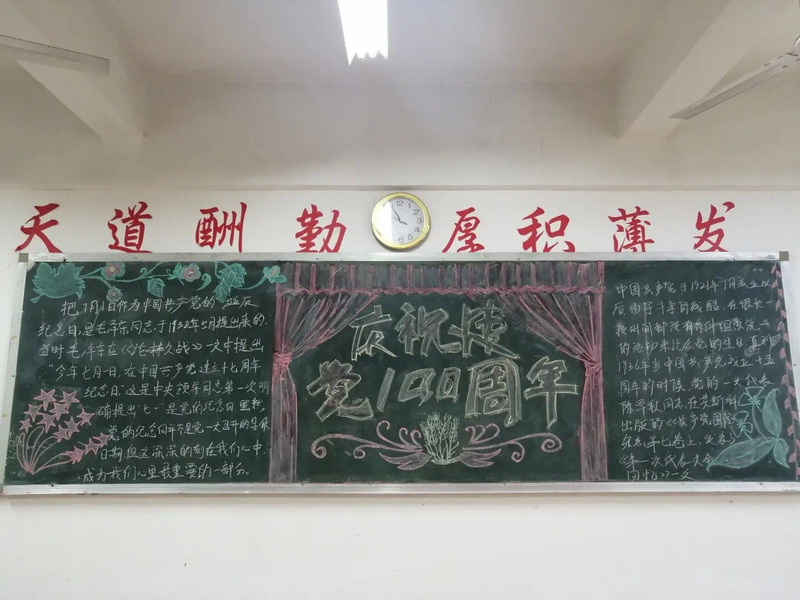 天道酬勤 厚积薄发
把7月1日作为中国共产党的
纪念日,是毛泽东同志于1938年5月提出来的.
当时毛泽东在《论持久战》一文中提出
"今年七月一日,在中国共产党建立十七周年
纪念日"这是中央领导同志第一次明
确提出"七一"是党的纪念日
党的纪念日并不是党一大召开的
日期,但这深深的刻在我们心中,
成为我们心里最重要的一部分.
庆祝建
党100周年
中国共产党于1921年7月成立以
后由于斗争的残酷.在很长一
段时间都没有
的活动来纪念党的生日直到
1936年当中国共产党成立十五
周年的时候,党的一大代表
陈潭秋同志在莫斯科
出版的《共产国际》
发表
《第一次代表大会
回忆》一文